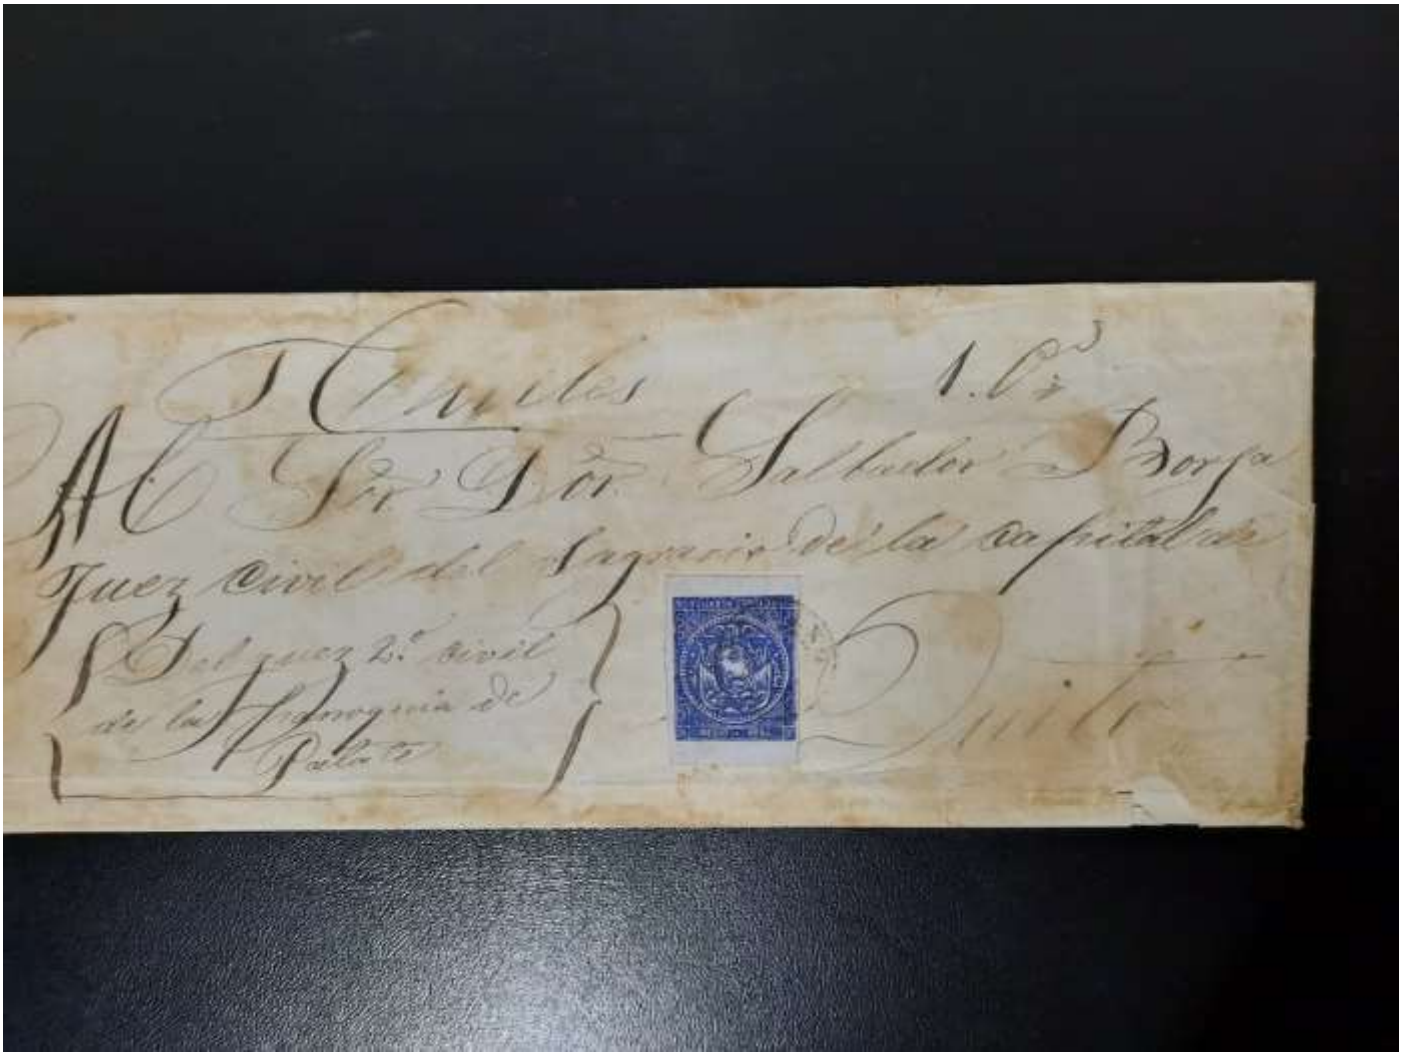 Civiles 1. Pz
Al Sor Dor. Salbador Borja
Juez Civil del Sagrario de la Capital de
Quito
Del juez 2º. Civil
de la Parroquia de
Pelate